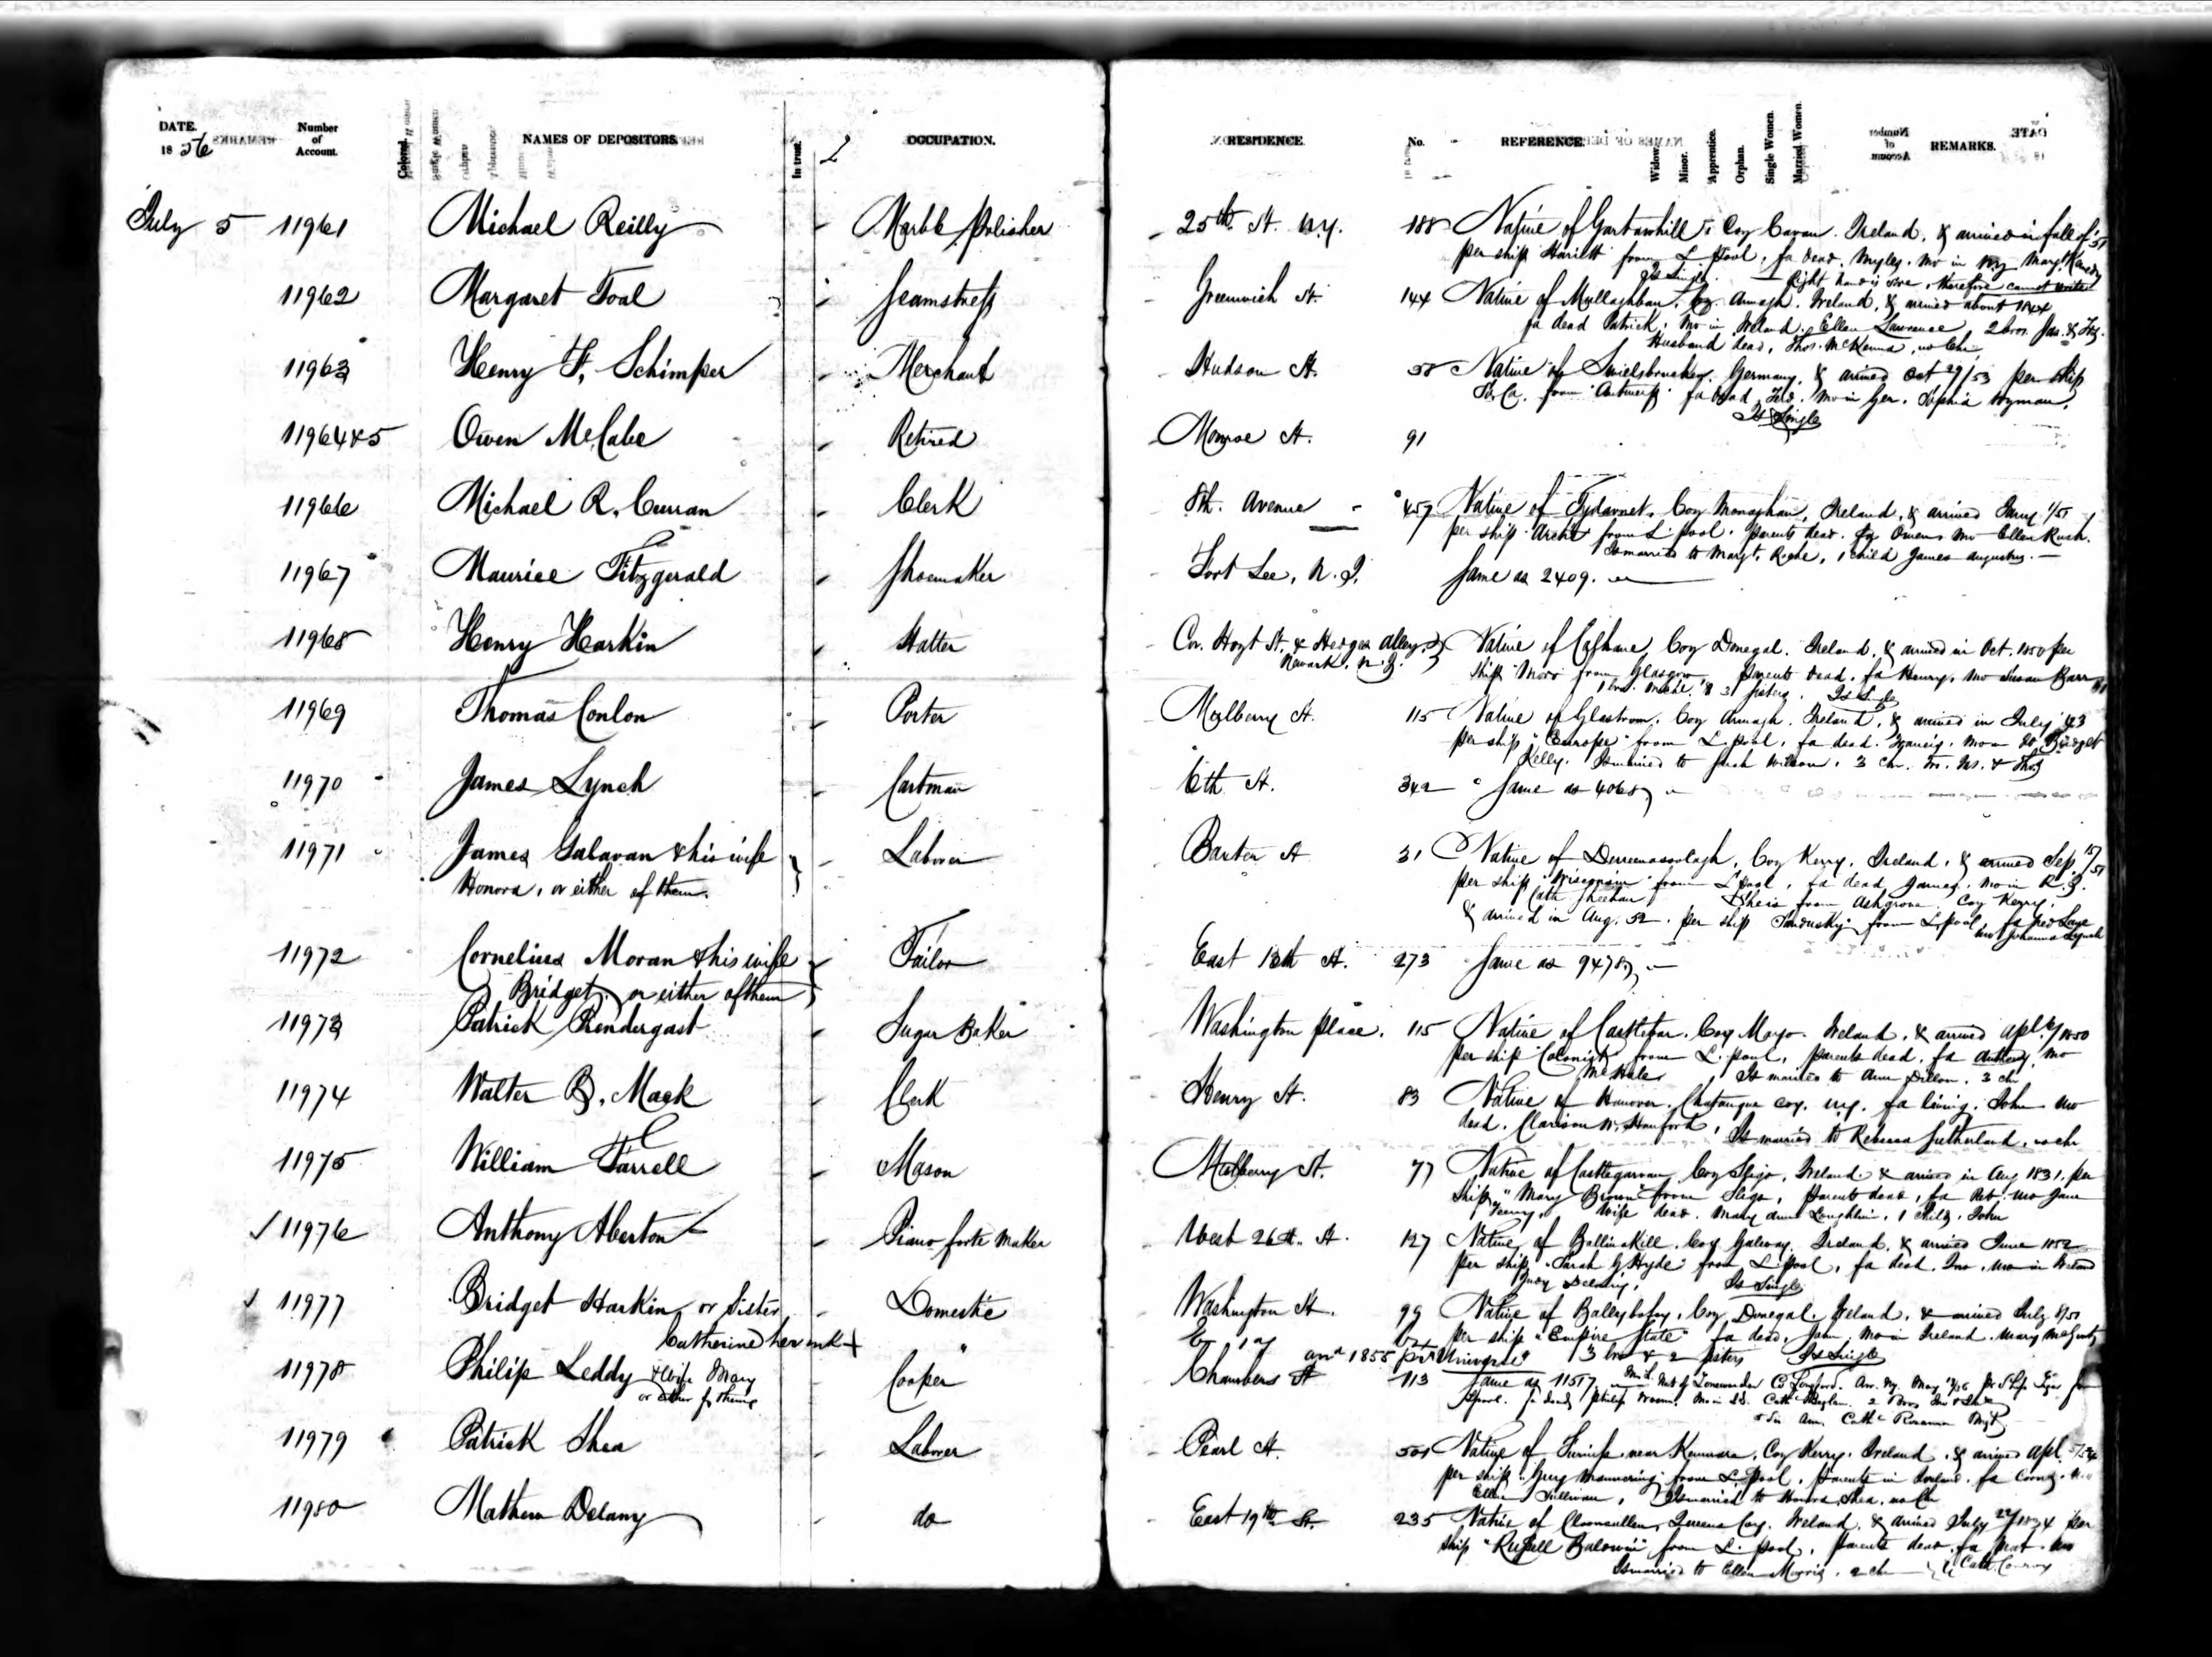 DATE. 1856 Number of Account. Colored. NAMES OF DEPOSITORS. In trust. OCCUPATION. RESIDENCE. No. REFERENCE. Widow. Minor. Apprentice. Orphan. Single Women. Married Women. REMARKS.
July 5 11961 Michael Reilly Marble Polisher 25th St. N.Y. 188 Native of Coy Cavan. Ireland, & arrived in fall of '51
per ship Hariett from L. pool, fa dead, Myles, mo in N.Y. Margt.
Is Single. Right hand is sore, therefore cannot write
11962 Margaret Toal Seamstress Greenwich St. 144 Native of Mullaghban, Coy. Armagh. Ireland, & arrived about 1844
fa dead Patrick, Mo in Ireland. Ellen Lawrence, 2 bros. Jas. &
Husband dead, Thos. McKenna, no Chn
11963 Henry F. Schimper Merchant Hudson St. 58 Native of Germany, & arrived Oct 29/53 per ship
from Antwerp fa dead, mo in Ger. Sophia Wyman.
Is Single
11964 & 5 Owen McCabe Retired Monroe St. 91
11966 Michael R. Curran Clerk 8th. Avenue 457 Native of Tydavnet, Coy Monaghan, Ireland, & arrived
per ship from L. pool. parents dead. fa Owen, Mo Ellen Rush.
Is married to Margt. 1 child James Augustus.
11967 Maurice Fitzgerald Shoemaker Fort Lee, N.J. Same as 2409.
11968 Henry Harkin Hatter Cor. Hoyt St. & Hedges Alley, Native of Coy Donegal. Ireland, & arrived in Oct. 1850 per
Newark. N.J. Ship from Glasgow parents dead. fa Henry, mo Susan Barr
1 bro. & 3 sisters. Is Single
11969 Thomas Conlon Porter Mulberry St. 115 Native of Coy Armagh. Ireland, & arrived in July '43
per ship "Europe" from L. pool, fa dead. Francis, Mo Bridget
Kelly. Is married to Wilson, 3 chn. & Thos.
11970 James Lynch Cartman 6th St. 342 Same as 4068
11971 James Galavan & his wife Laborer Baxter St 31 Native of Coy Kerry, Ireland, & arrived Sep 15/51
Honora, or either of them. per ship "Wisconsin" from L pool, fa dead, James, mo in
Cath Sheehan She is from Ashgrove Coy Kerry,
& arrived in Aug. 52. per ship Sandusky from L. pool, fa
mo Johanna Lynch
11972 Cornelius Moran & his wife Tailor East 13th St. 273 Same as 9478
Bridget, or either of them
11973 Patrick Prendergast Sugar Baker Washington place. 115 Native of Castlebar. Coy Mayo. Ireland, & arrived Apl. 1850
per ship Colonist from L. pool, parents dead. fa Anthony, mo
McHale Is married to Ann Dillon. 3 chn
11974 Walter B. Mack Clerk Henry St. 83 Native of Hanover. Chatauqua Coy. N.Y. fa living. John mo
dead. Hanford, Is married to Rebecca Sutherland, no chn
11975 William Farrell Mason Mulberry St. 77 Native of Coy Sligo, Ireland & arrived in Aug 1831. per
ship "Mary Brown" from Sligo, parents dead, fa Pat. mo Jane
wife dead. Mary Ann Loughlin, 1 child, John
11976 Anthony Aberton Piano forte Maker West 26th. St. 127 Native of Ballinakill. Coy Galway. Ireland, & arrived June 1852
per ship "Sarah G Hyde" from L. pool, fa dead. Jno. Mo in Ireland
Is Single
11977 Bridget Harkin or Sister Domestic Washington St. 99 Native of Ballybofey, Coy Donegal. Ireland, & arrived July
Catherine her mk + per ship "Empire State" fa dead, John, Mo in Ireland. Mary McGinty
arrd 1855 pr "Universe" 3 bros & 2 sisters Is Single
11978 Philip Leddy & Wife Mary Cooper Chambers St 113 Same as 11517
or either of them fa dead, Philip Cath 2 Bros
Ann. Cathe Rosanna Mgt
11979 Patrick Shea Laborer Pearl St. 501 Native of near Kenmare, Coy Kerry. Ireland, & arrived Apl.
per ship "Guy Mannering" from L. pool, parents in Ireland. fa
Ellen Sullivan, Is married to Honora Shea, no Chn
11980 Mathew Delany do East 19th St. 235 Native of Queens Coy. Ireland, & arrived July per
ship "Russell Baldwin" from L. pool, parents dead, fa Mat. mo
Is married to Ellen Morris. 2 chn Cath. Conroy